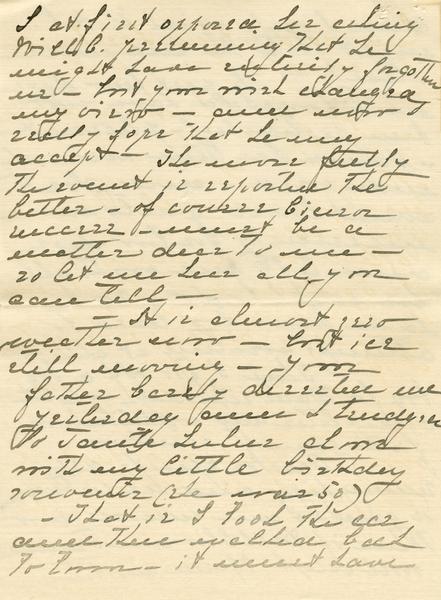 I at first opposed her asking
Will C. presuming that he
might have entirely forgotten
me – but your wish changed
my views – and now I
really hope that he may
accept – The more fully
the event is reported the
better – of course
success – must be a
matter dear to me –
so let me hear all you
can tell –
– It is almost zero
weather now – but ice
still moving – your
father barely deserted me
yesterday and I trudged
to alone
with my little birthday
souvenir (she was 50)
– That is I took the car
and then walked back
to town – it must have